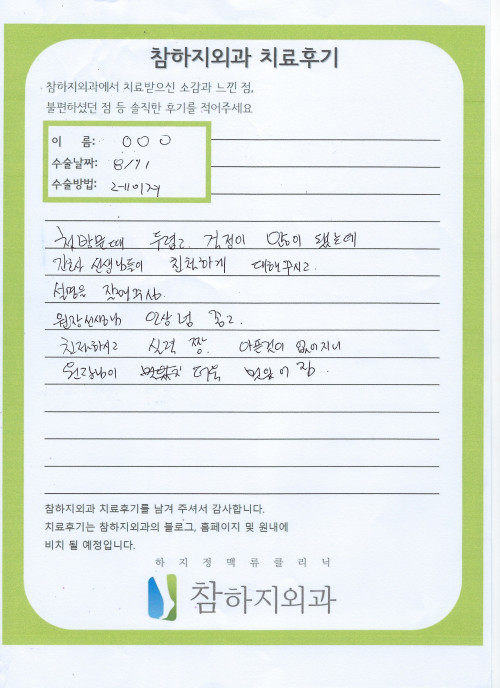 참하지외과 치료후기
참하지외과에서 치료받으신 소감과 느낀 점,
불편하셨던 점 등 솔직한 후기를 적어주세요
이 름: 000
수술날짜: 8/71
수술방법: 레이져
첫방문때 두렵고 걱정이 많이 됐는데
간호사 선생님들이 친절하게 대해주시고
설명을 잘해주심.
원장선생님 인상 넘 좋고
친절하시고 실력 짱. 아픈것이 없어지니
원장님이 더욱 멋있어 짐.
참하지외과 치료후기를 남겨 주셔서 감사합니다.
치료후기는 참하지외과의 블로그, 홈페이지 및 원내에
비치 될 예정입니다.
하지정맥류클리닉
참하지외과